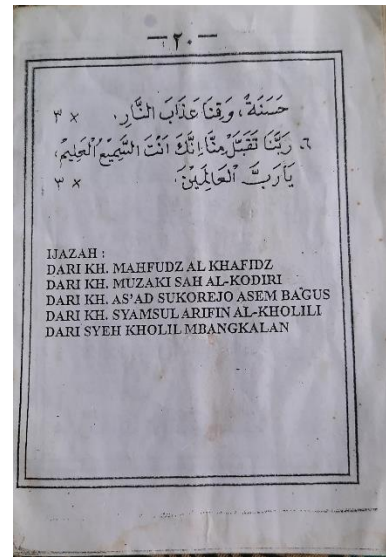 — ٢٠ —
حَسَنَةً، وَقِنَا عَذَابَ النَّارِ. × ٣
٦. رَبَّنَا تَقَبَّلْ مِنَّا اِنَّكَ اَنْتَ السَّمِيْعُ الْعَلِيْمُ،
يَارَبَّ الْعَالَمِيْنَ. × ٣
IJAZAH :
DARI KH. MAHFUDZ AL KHAFIDZ
DARI KH. MUZAKI SAH AL-KODIRI
DARI KH. AS'AD SUKOREJO ASEM BAGUS
DARI KH. SYAMSUL ARIFIN AL-KHOLILI
DARI SYEH KHOLIL MBANGKALAN